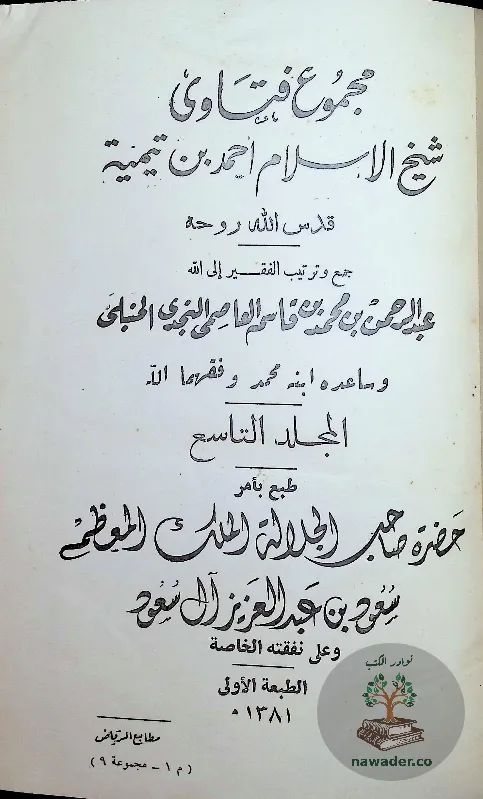 مجموع فتاوى
شيخ الاسلام احمد بن تيمية
قدس الله روحه
جمع وترتيب الفقير إلى الله
عبد الرحمن بن محمد بن قاسم العاصمى النجدى الحنبلى
وساعده ابنه محمد وفقهما الله
المجلد التاسع
طبع بأمر
حضرة صاحب الجلالة الملك المعظم
سعود بن عبد العزيز آل سعود
وعلى نفقته الخاصة
الطبعة الأولى
١٣٨١ ه
مطابع الرياض
( م ١ - مجموعة ٩ )
نوادر الكتب
nawader.co